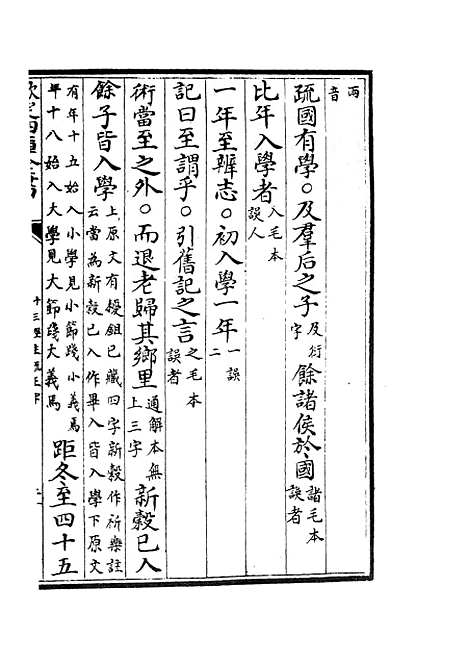 兩音
疏國有學○及羣后之子及衍字餘諸侯於國諸毛本誤者
比年入學者入毛本誤人
一年至辨志○初入學一年一誤二
記曰至謂乎○引舊記之言之毛本誤者
術當至之外○而退老歸其鄉里通解本無上三字新穀已入
餘子皆入學上原文有耰鉏已藏四字新穀作祈樂註云當為新穀已入作畢入皆入學下原文
有年十五始入小學見小節踐小義焉年十八始入大學見大節踐大義焉距冬至四十五
欽定四庫全書
十三經注疏正字